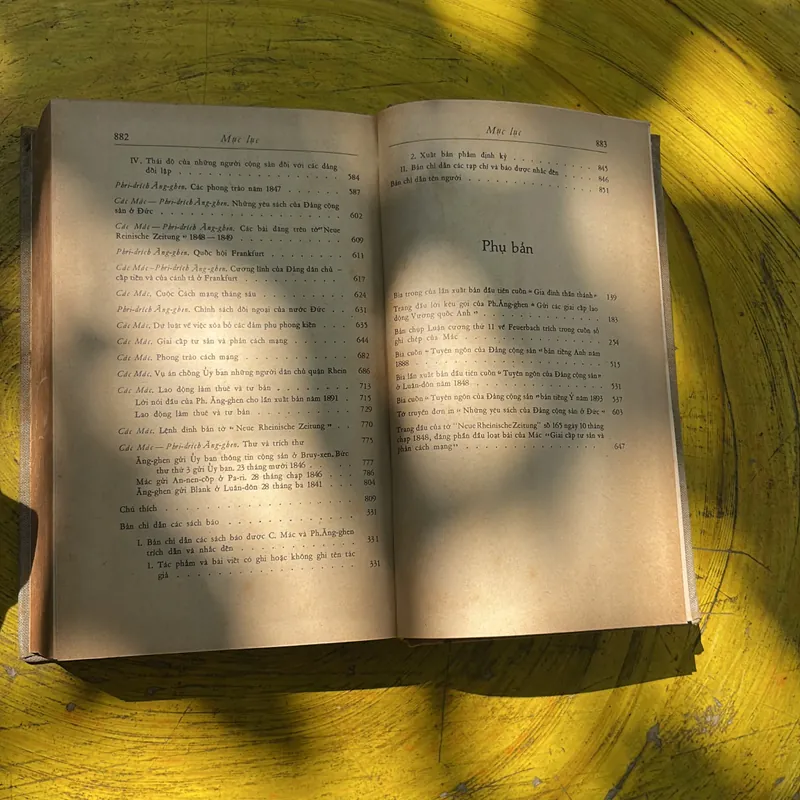 882 Mục lục
IV. Thái độ của những người cộng sản đối với các đảng
đối lập 584
Phri-drích Ăng-ghen. Các phong trào năm 1847 587
Các Mác — Phri-drích Ăng-ghen. Những yêu sách của Đảng cộng
sản ở Đức 602
Các Mác — Phri-drích Ăng-ghen. Các bài đăng trên tờ "Neue
Reinische Zeitung" 1848 — 1849 609
Phri-drích Ăng-ghen. Quốc hội Frankfurt 611
Các Mác—Phri-drích Ăng-ghen. Cương lĩnh của Đảng dân chủ -
cấp tiến và của cánh tả ở Frankfurt 617
Các Mác. Cuộc Cách mạng tháng sáu 624
Phri-drích Ăng-ghen. Chính sách đối ngoại của nước Đức 631
Các Mác. Dự luật về việc xóa bỏ các đảm phụ phong kiến 635
Các Mác. Giai cấp tư sản và phản cách mạng 644
Các Mác. Phong trào cách mạng 682
Các Mác. Vụ án chống Ủy ban những người dân chủ quận Rhein 686
Các Mác. Lao động làm thuê và tư bản 713
Lời nói đầu của Ph. Ăng-ghen cho lần xuất bản năm 1891 715
Lao động làm thuê và tư bản 729
Các Mác. Lệnh đình bản tờ "Neue Rheinische Zeitung" 770
Các Mác — Phri-drích Ăng-ghen. Thư và trích thư 775
Ăng-ghen gửi Ủy ban thông tin cộng sản ở Bruy-xen, Bức
thư thứ 3 gửi Ủy ban, 23 tháng mười 1846 777
Mác gửi An-nen-cốp ở Pa-ri. 28 tháng chạp 1846 786
Ăng-ghen gửi Blank ở Luân-đôn 28 tháng ba 1841 804
Chú thích 809
Bản chỉ dẫn các sách báo 331
I. Bản chỉ dẫn các sách báo được C. Mác và Ph.Ăng-ghen
trích dẫn và nhắc đến 331
1. Tác phẩm và bài viết có ghi hoặc không ghi tên tác
giả 331
Mục lục 883
2. Xuất bản phẩm định kỳ 845
II. Bản chỉ dẫn các tạp chí và báo được nhắc đến 846
Bản chỉ dẫn tên người 851
Phụ bản
Bìa trong của lần xuất bản đầu tiên cuốn "Gia đình thần thánh" 139
Trang đầu lời kêu gọi của Ph.Ăng-ghen "Gửi các giai cấp lao
động Vương quốc Anh" 183
Bản chụp Luận cương thứ 11 về Feuerbach trích trong cuốn sổ
ghi chép của Mác 254
Bìa cuốn "Tuyên ngôn của Đảng cộng sản" bản tiếng Anh năm
1888 515
Bìa lần xuất bản đầu tiên cuốn "Tuyên ngôn của Đảng cộng sản"
ở Luân-đôn năm 1848 531
Bìa cuốn "Tuyên ngôn của Đảng cộng sản" bản tiếng Ý năm 1893 537
Tờ truyền đơn in "Những yêu sách của Đảng cộng sản ở Đức" 603
Trang đầu của tờ "Neue RheinischeZeitung" số 165 ngày 10 tháng
chạp 1848, đăng phần đầu loạt bài của Mác "Giai cấp tư sản và
phản cách mạng" 647